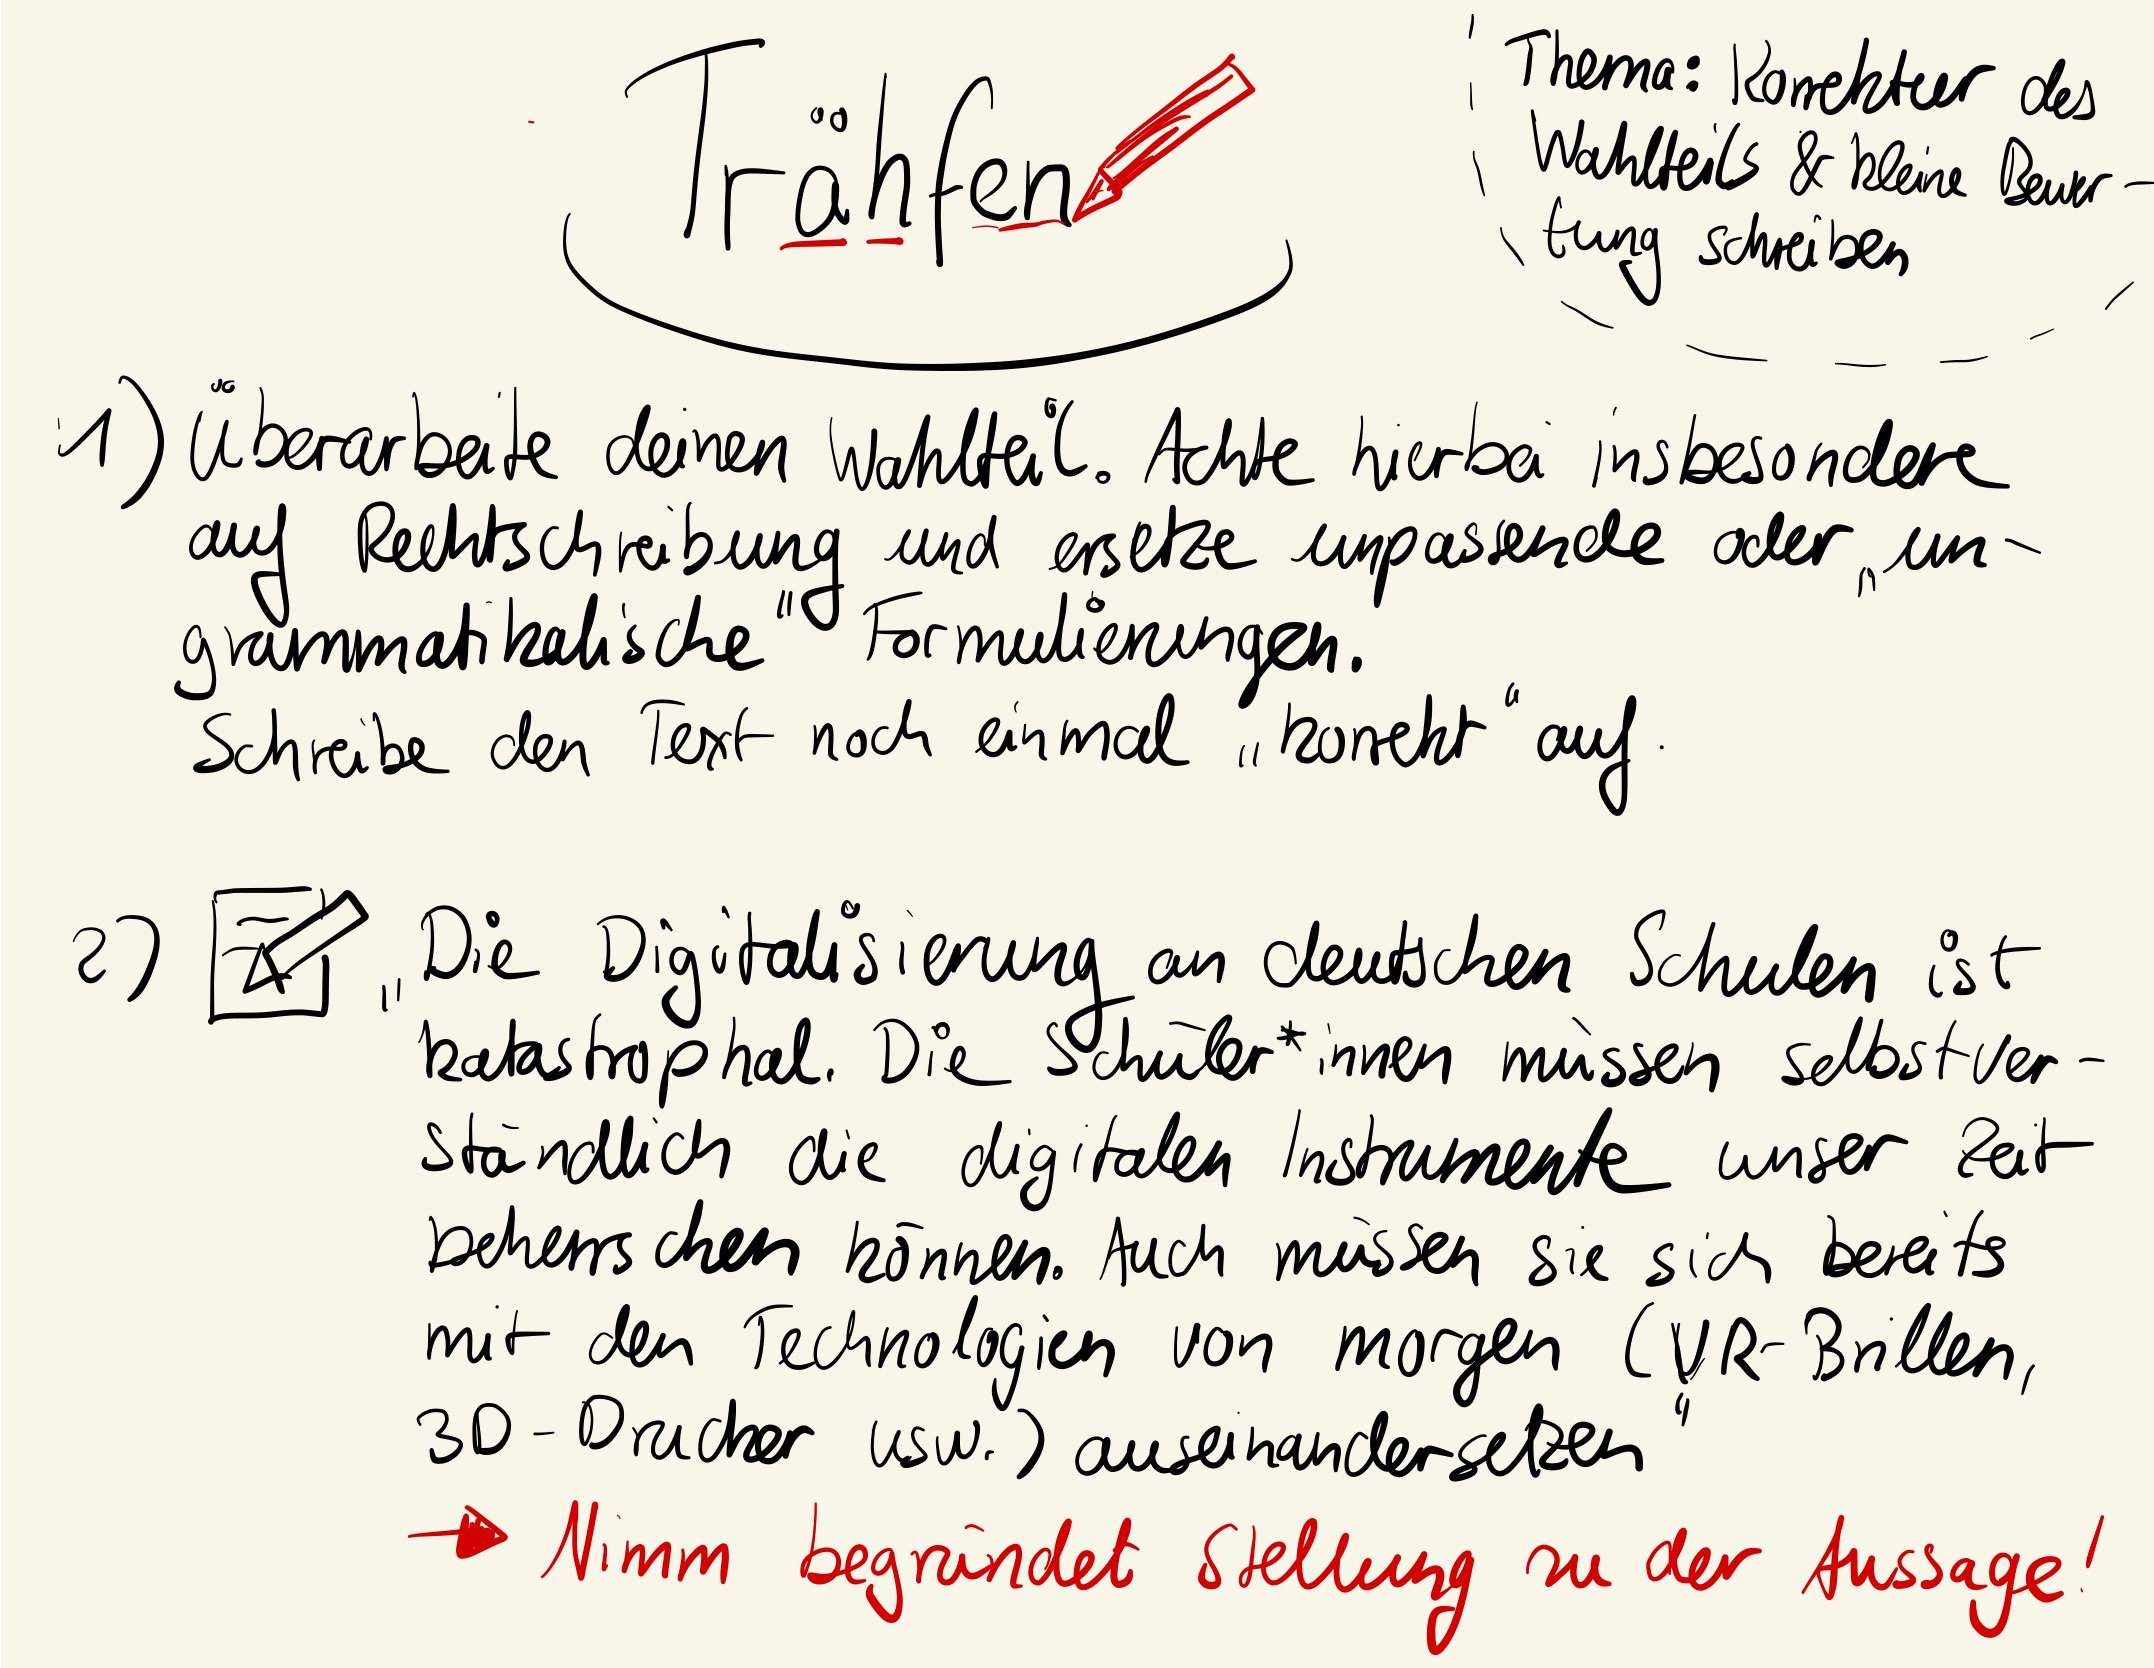 Trähfen
Thema: Korrektur des
Wahlteils & kleine Bewer-
tung schreiben
1) Überarbeite deinen Wahlteil. Achte hierbei insbesondere
auf Rechtschreibung und ersetze unpassende oder „un-
grammatikalische" Formulierungen.
Schreibe den Text noch einmal „korrekt" auf.
2) „Die Digitalisierung an deutschen Schulen ist
katastrophal. Die Schüler*innen müssen selbstver-
ständlich die digitalen Instrumente unser Zeit
beherrschen können. Auch müssen sie sich bereits
mit den Technologien von morgen (VR-Brillen,
3D-Drucker usw.) auseinandersetzen"
→ Nimm begründet Stellung zu der Aussage!